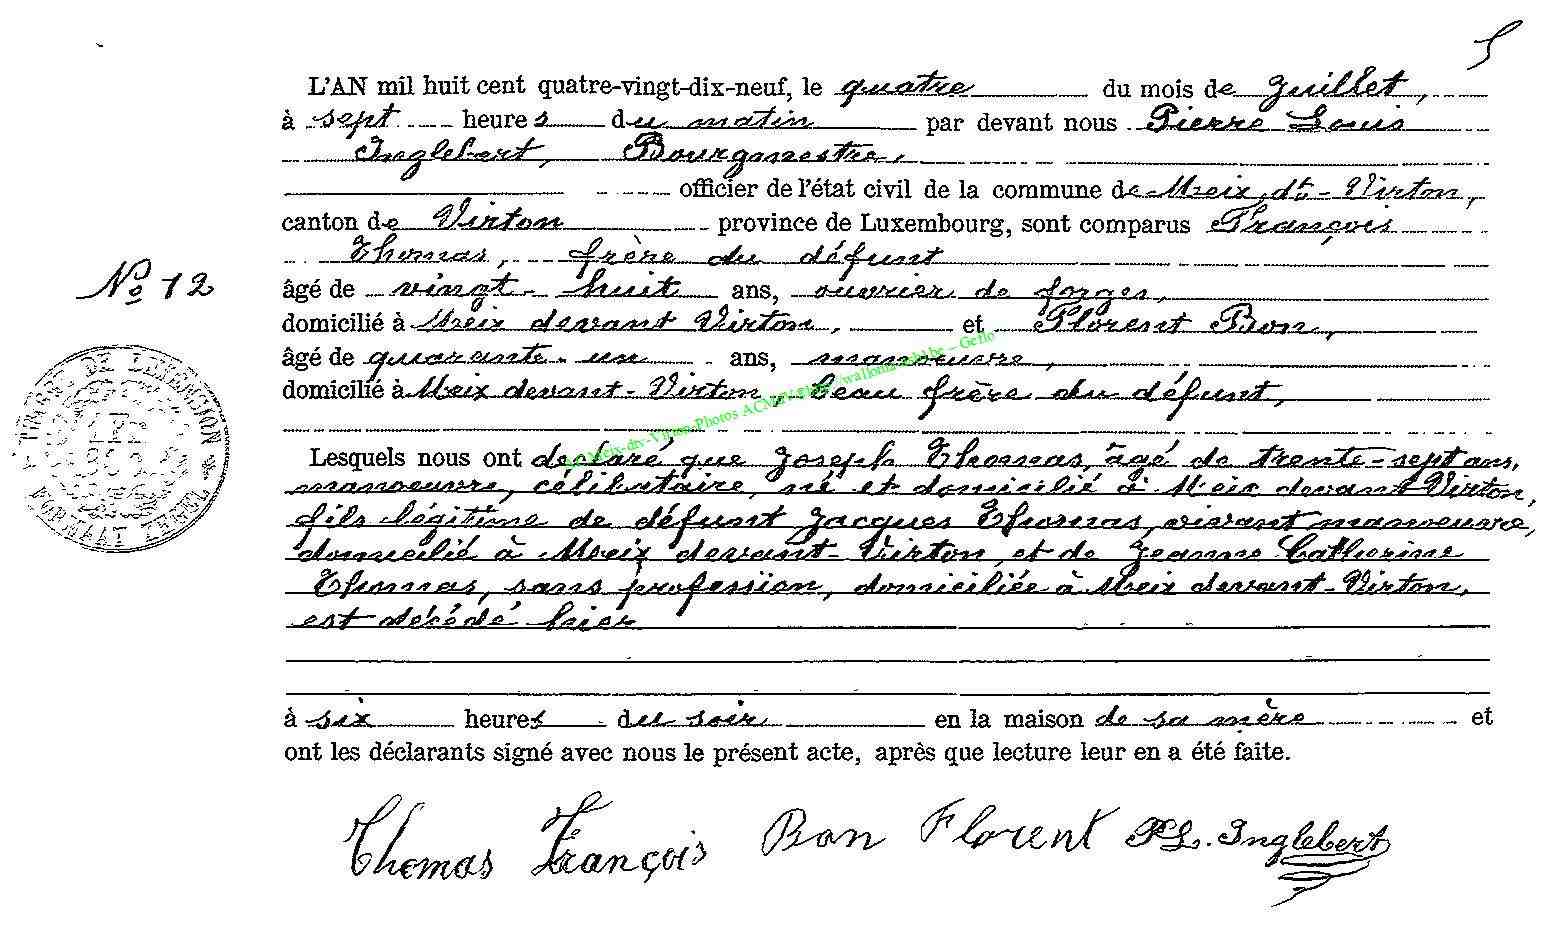 5
L'AN mil huit cent quatre-vingt-dix-neuf, le quatre du mois de Juillet,
à sept heures du matin par devant nous Pierre Louis
Inglebert, Bourgmestre,
officier de l'état civil de la commune de Meix dt-Virton,
canton de Virton province de Luxembourg, sont comparus François
Thomas, frère du défunt
No 12
âgé de vingt-huit ans, ouvrier de forges,
domicilié à Meix devant Virton, et Florent Bon,
âgé de quarante-un ans, manoeuvre,
domicilié à Meix devant-Virton, beau frère du défunt,
TIMBRE DE DIMENSION
FORMAAT ZEGEL
Meix-dvt-Virton-Photos - Geflo
Lesquels nous ont déclaré, que Joseph Thomas, âgé de trente-sept ans,
manoeuvre, célibataire, né et domicilié à Meix devant Virton,
fils légitime de défunt Jacques Thomas, vivant manoeuvre,
domicilié à Meix devant-Virton, et de Jeanne Catherine
Thomas, sans profession, domiciliée à Meix devant-Virton,
est décédé hier
à six heures du soir en la maison de sa mère et
ont les déclarants signé avec nous le présent acte, après que lecture leur en a été faite.
Thomas François Bon Florent PL. Inglebert